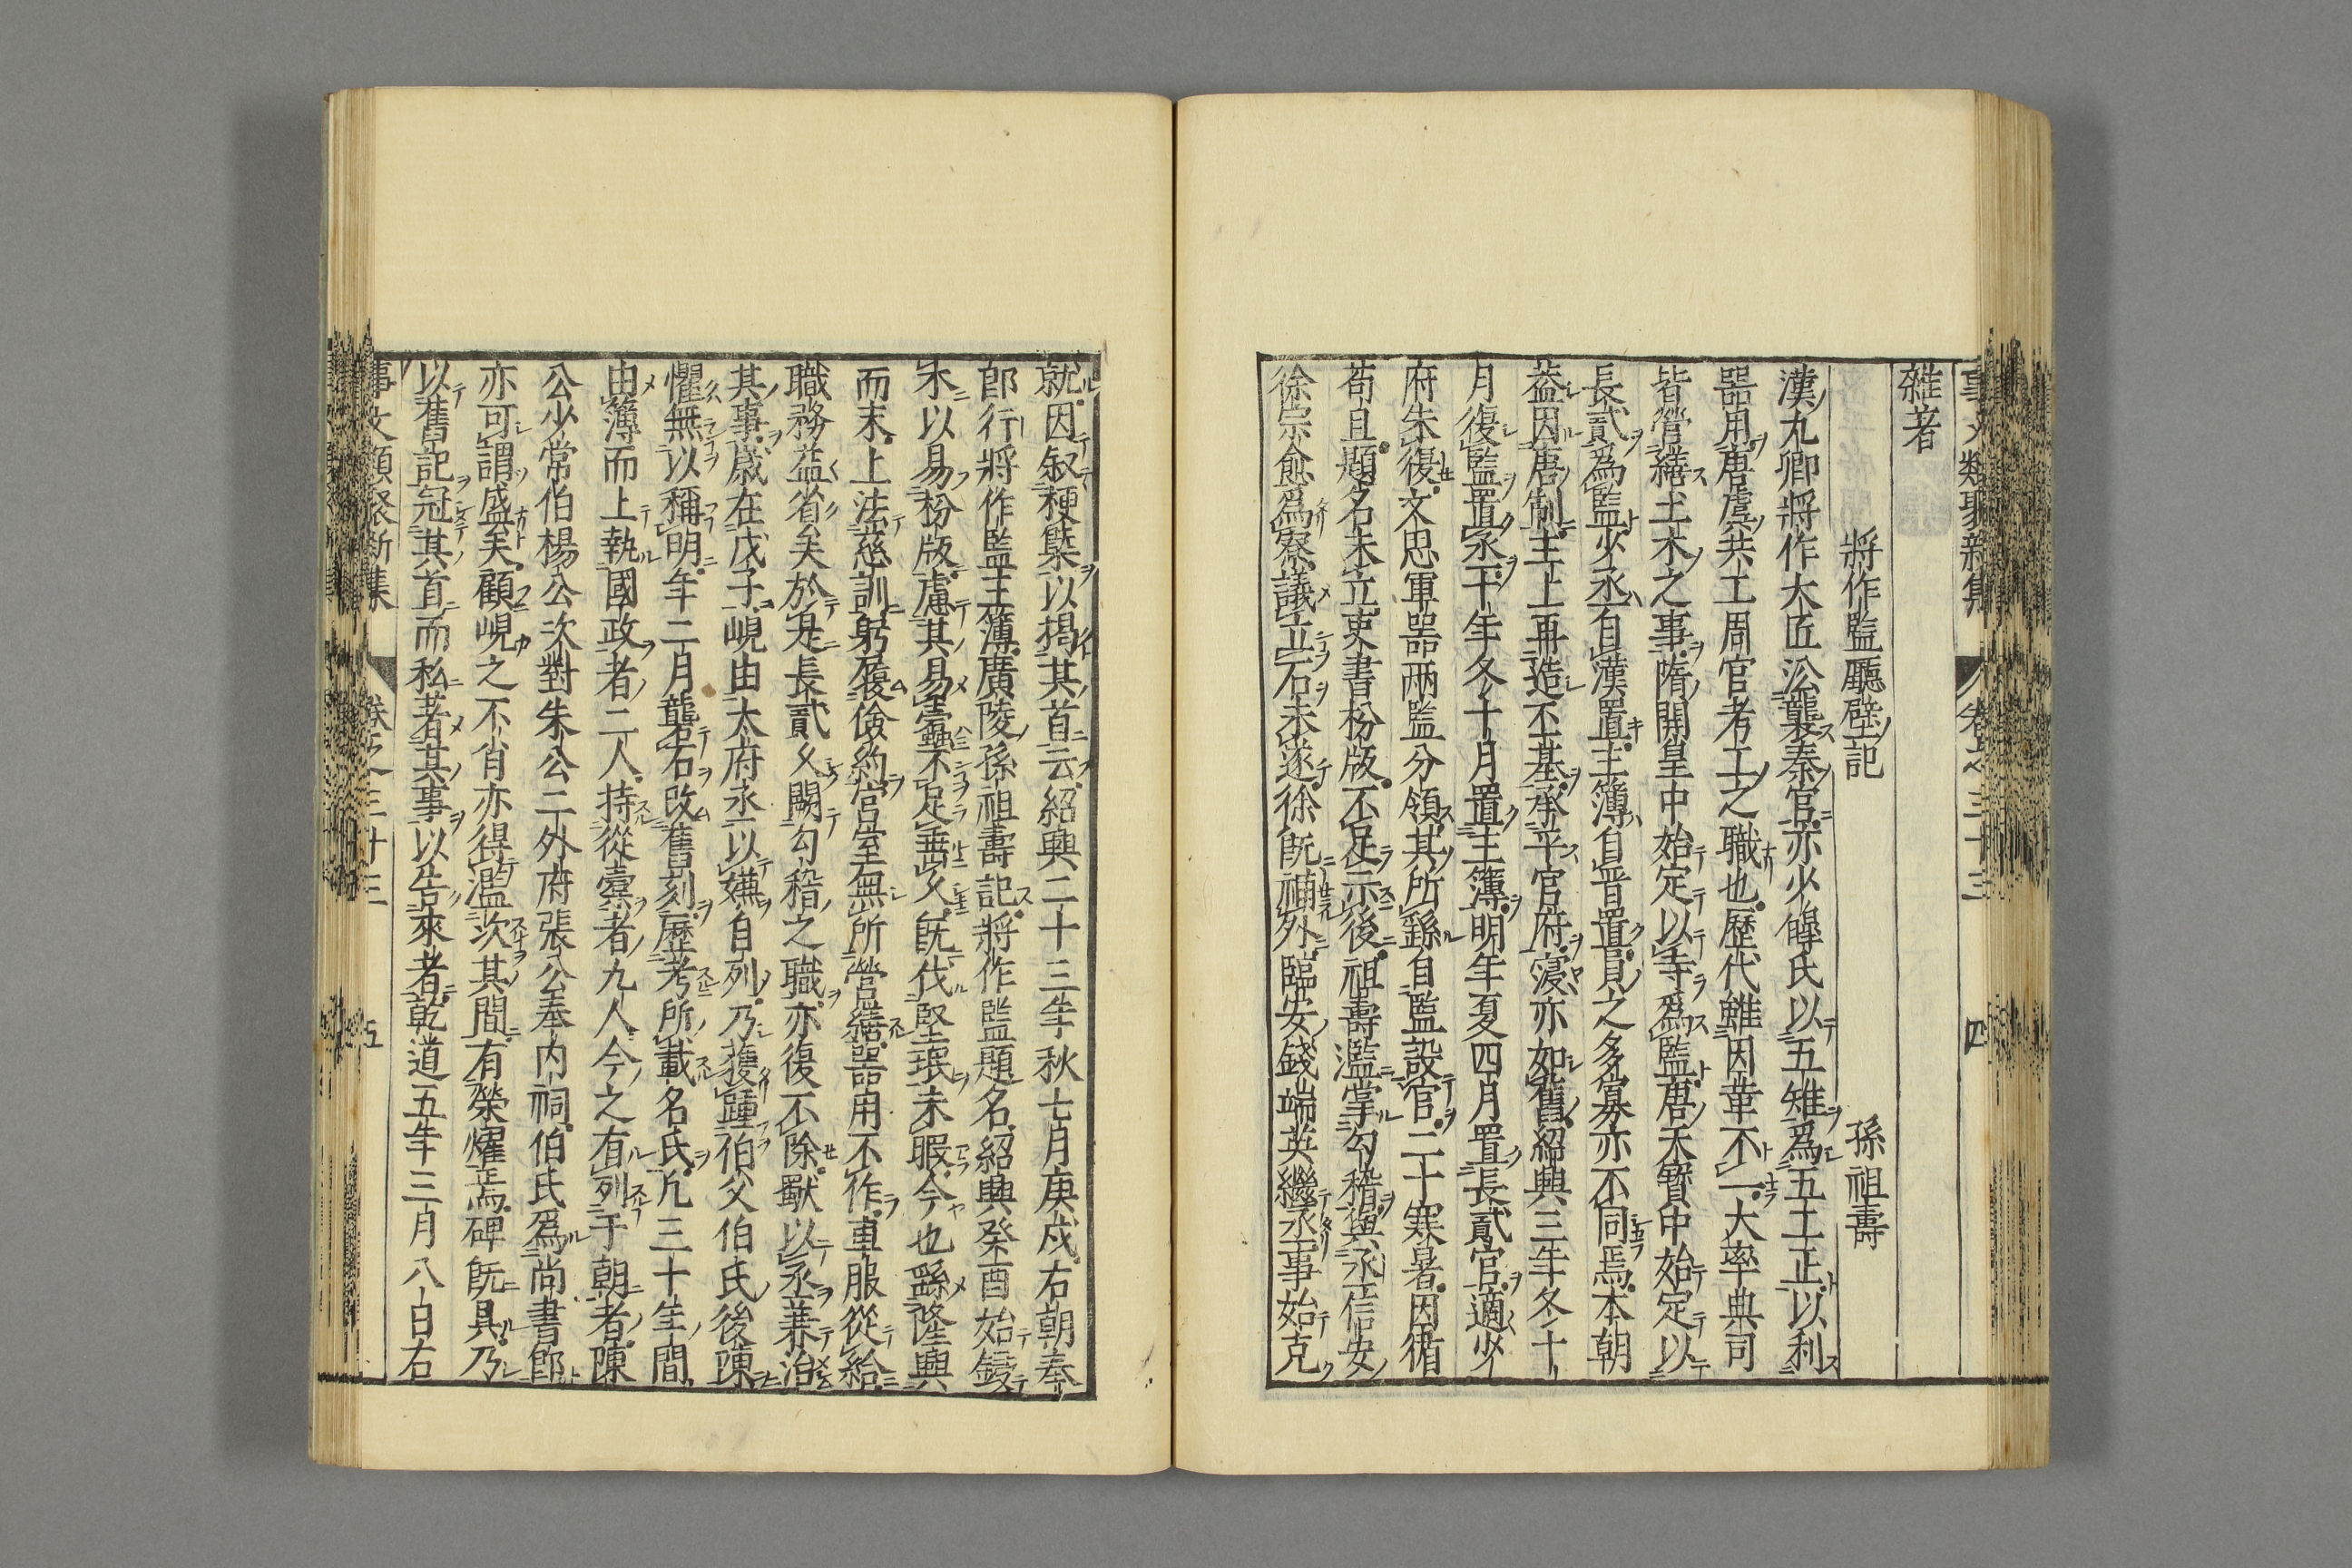 事文類聚新集 卷之三十三 四
雜著
將作監廳壁記 孫祖壽
漢九卿將作大匠㳂襲秦官亦少皥氏以五雉爲五工正以利
器用唐虞共工周官考工之職也歷代雖因革不一大率典司
皆營繕土木之事隋開皇中始定以寺爲監唐天寶中始定以
長貳爲監少丞自漢置主簿自晉置員之多寡亦不同焉本朝
葢因唐制主上再造丕基承平官府寖亦如舊紹興三年冬十
月復監置丞十年冬十月置主簿明年夏四月置長貳官適少
府朱復文思軍器兩監分領其所繇自監設官二十寒暑因循
苟且題名未立吏書枌版不足示後祖壽濫掌勾稽與丞信安
徐宗愈爲寮議立石未遂徐既補外臨安錢端英繼丞事始克
就因叙梗槩以揭其首云紹興二十三年秋七月庚戍右朝奉
郎行將作監主簿廣陵孫祖壽記將作監題名紹興癸酉始鋟
木以易枌版慮其易蠧不足垂乆既伐堅珉未暇今也繇隆興
而末上法慈訓躬履儉約宫室無所營繕器用不作車服從給
職務益省矣於是長貳乆闕勾稽之職亦復不除獸以丞兼治
其事歳在戊子峴由太府丞以嫌自列乃獲踵伯父伯氏後陳
懼無以稱明年二月礱石改舊刻歷考所載名氏凢三十年間
由簿而上執國政者二人持從橐者九人今之有列于朝者陳
公少常伯楊公次對朱公二外府張公奉内祠伯氏爲尚書郎
亦可謂盛矣顧峴之不肖亦得濫次其間有榮燿焉碑既具乃
以舊記冠其首而私著其事以告來者乾道五年三月八日右
事文類聚新集 卷之三十三 五